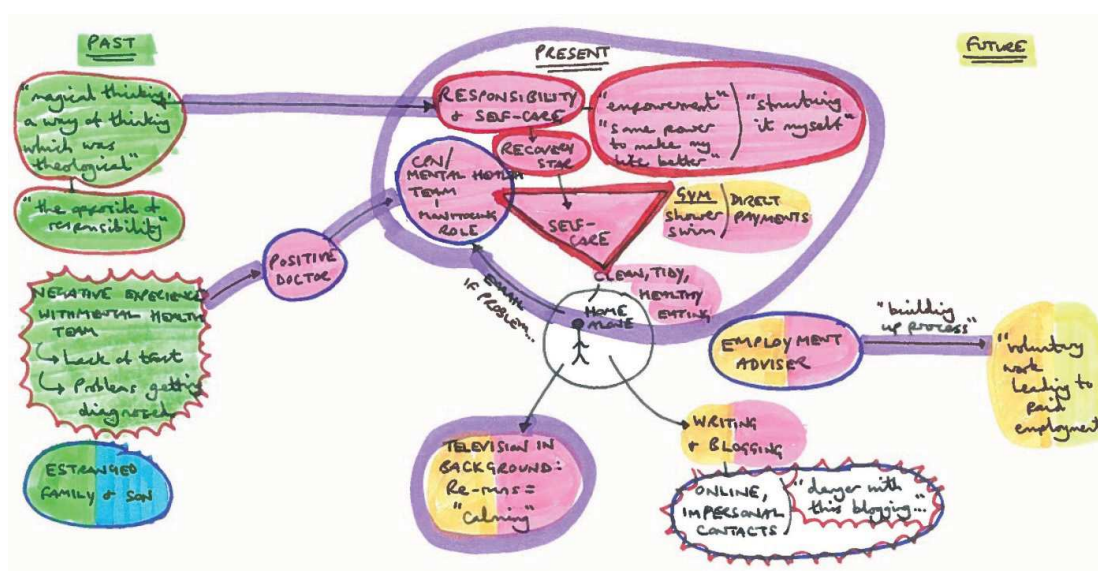 PAST
PRESENT
FUTURE
"magical thinking"
a way of thinking
which was
theological"
"the opposite of
responsibility"
NEGATIVE EXPERIENCE
WITH MENTAL HEALTH
TEAM
Lack of trust
Problems getting
diagnosed
ESTRANGED
FAMILY & SON
POSITIVE
DOCTOR
RESPONSIBILITY
& SELF-CARE
"empowerment"
"some power
to make my
life better"
"structuring
it myself"
RECOVERY
STAR
CPN/
MENTAL HEALTH
TEAM
MONITORING
ROLE
SELF-
CARE
GYM
shower
swim
DIRECT
PAYMENTS
CLEAN, TIDY,
HEALTHY
EATING
EMAIL
IF PROBLEM...
HOME
ALONE
EMPLOYMENT
ADVISER
"building
up process"
"voluntary
work
leading to
paid
employment
TELEVISION IN
BACKGROUND:
Re-runs =
"calming"
WRITING
& BLOGGING
ONLINE,
IMPERSONAL
CONTACTS
"danger with
this blogging...